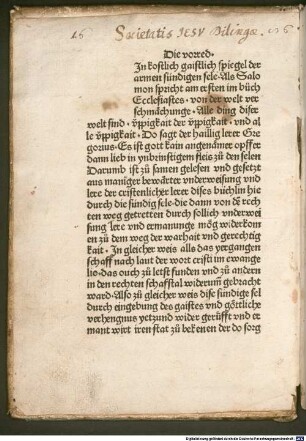 16 Societatis IESV Dilingæ
Die vorred.
In kostlich gaistlich spiegel der
armen sündigen sele. Als Salo
mon spricht am ersten im bůch
Ecclesiastes. von der welt ver
schmåchunge. Alle ding diser
welt sind. vppigkait der vppigkait. vnd al
le vppigkait. Do sagt der haillig lerer Gre
gorius. Es ist gott kain angenämer opffer
dann lieb in ynbrinstigem fleis zů den selen
Darumb ist zů samen gelesen vnd gesetzt
aus maniger bewärter vnderweisung vnd
lere der cristenlicher lerer dises büchlin hie
durch die sündig sele die dann von dē rech
ten weg getretten durch söllich vnderwei
sung lere vnd ermanunge mög widerkom
en zů dem weg der warhait vnd gerechtig
kait. In gleicher weis alls das vergangen
schaff nach laut der wort cristi im ewange
lio. das ouch zů letst funden vnd zů andern
in den rechten schaffstal widerum̄ gebracht
ward. Also zů gleicher weis dise sündige sel
durch eingebung des gaistes vnd göttliche
verhengnus yetzund wider gerüfft vnd er
mant wirt iren stat zů bekenen der do sorg